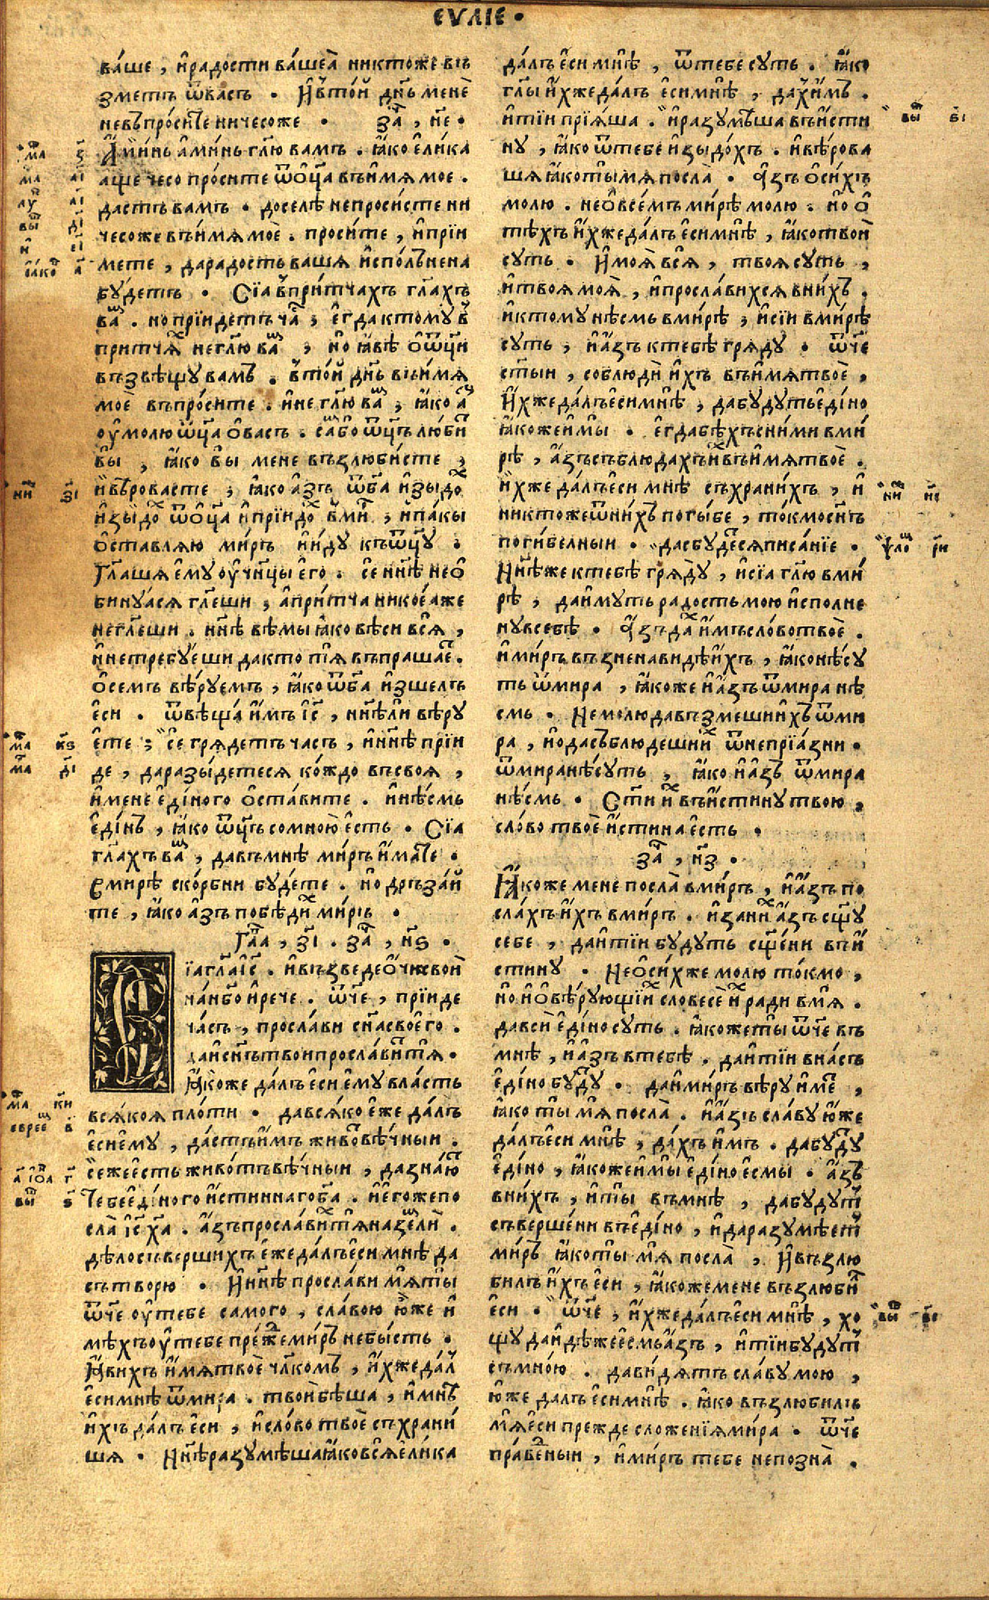 ЄѴЛІЄ ·
ва́ше , и҆радости ва́шеѧ̀ никтоже въ
зметъ ѿва́съ · И҆в̾то́й дн҃ь менѐ
невъпро́сите ничесоже · за҄ , н҃е ·
А҆ми́нь а҆ми́нь гл҃ю вамъ . ꙗ҆́ко є҆ли́ка
аще чесо про́сите ѿо҆ц҃а въи́мѧ мое .
дастъ вамъ · доселѣ непроси́сте ни
чесоже въи́мѧ моѐ . проси́те , и҆прїи
мете , дарадость ваша и҆спо́лънена
будетъ · Сїа̀ в̾при́тчахъ гл҃ахъ
ва́м . но прїидетъ ча́с , є҆гда ктому в̾
притча́х негл҃ю ва́м , но ꙗ҆́вѣ ѡ҆ѿц҃и
възвѣщу вамъ . в̾то́й дн҃ь въи́мѧ
моѐ въпро́сите . и҆не гл҃ю ва́м , ꙗ҆́ко а҆́з
оу҆молю ѿц҃а ѡ҆васъ . са́мбо ѿц҃ъ лю́бит
вы̀ , ꙗ҆́ко вы мене възлюби́сте ,
и҆вѣ́ровасте , ꙗ҆́ко а҆́зъ ѿб҃а и҆зыдо́х
и҆зыдо́х ѿо҆ц҃а и҆прїидо́х в̾ми́р , и҆па́кы
ѡ҆ставлѧю миръ и҆и҆ду къѿц҃у .
Гл҃ашѧ є҆му оу҆чн҃ицы є҆го . се нн҃ѣ нео҆
бинуасѧ гл҃еши , а҆при́тча никоеѧже
негл҃еши . нн҃ѣ вѣ́мы ꙗ҆́ко вѣ́си всѧ̀ ,
и҆нетребуеши дакто тѧ̀ въпраша́ет .
ѡ҆семъ вѣ́руемъ , ꙗ҆́ко ѿб҃а и҆зшелъ
є҆си · ѿвѣща̀ и҆́мъ і҆с҃ , нн҃ѣли вѣру
є҆те ; се грѧдетъ часъ , и҆нн҃ѣ прїи
де , даразы́детесѧ ко́ждо въсвоѧ ,
и҆мене є҆ди́ного ѡ҆ста́вите . и҆нѣ́смь
є҆ди́нъ , ꙗ҆́ко ѿц҃ъ сомно́ю є҆сть · Сїа̀
гл҃ахъ ва́м , давъмнѣ ми́ръ и҆мате ·
Вмирѣ ско́рбни будете . но дръза́й
те , ꙗ҆́ко а҆́зъ побѣди́х ми́ръ ·
Гла҄ , з҃і . за҄ , н҃ѕ ·
Сїа̀гл҃аі҆с҃ . и҆възведе о҆́чи свои
нанб҃о и҆рече . ѿч҃е , прїиде
ча́съ , просла́ви сн҃асвоего .
даи҆сн҃ътвои просла́виттѧ̀ .
ꙗ҆́коже да́лъе҆си є҆му вла́сть
всѧ́коѧ пло́ти · давсѧ́ко є҆же да́лъ
є҆сие҆му , да́стъи҆́мъ живо́твѣ́чныи .
сежее҆сть живо́тъвѣ́чныи , дазна́ют
тебее҆ди́ного и҆́стиннагоб҃а . и҆є҆го́жепо
сла̀ і҆с҃х҃а . а҆́зъпросла́вихтѧ̀наземлѝ .
дѣ́лосъверши́хъ є҆же да́лъе҆си мнѣ да
сътворю · И҆нн҃ѣ просла́ви мѧ̀ты̀
ѿч҃е оу҆тебе самого , сла́вою ю҆же и҆
мѣхъоу҆тебе пре́жемиръ небысть .
ꙗ҆ви́хъ и҆́мѧтвоѐ чл҃комъ , и҆́хжедал
є҆симнѣ ѿмира . твои бѣ́ша , и҆мнѣ
и҆́хъ да́лъ є҆си , и҆сло́во твоѐ съхрани́
шѧ · Нн҃ѣразумѣ́шаꙗ҆́ковсѧ̀е҆ли́ка
да́лъ є҆си мнѣ , ѿтебе суть . ꙗ҆́ко
гл҃ы и҆́хже да́лъ є҆симнѣ , да́хъи҆́мъ .
и҆тїи прїѧша . и҆разумѣ́ша въи҆́сти
ну , ꙗ҆́ко ѿтебе и҆зыдо́хъ . и҆вѣ́рова
шѧ ꙗ҆́котымѧпосла̀ . А҆́зъ ѡ҆си́хъ
молю . нео҆всемъмирѣ молю . но ѡ҆
тѣхъ и҆́хжедалъ є҆симнѣ , ꙗ҆́котвои
суть . И҆моѧ̀ всѧ̀ , твоѧсуть ,
и҆твоѧ моѧ̀ , и҆просла́вихсѧ вни́хъ .
и҆ктомунѣсмь вмирѣ , и҆сїи вмирѣ
суть , и҆а҆́зъ ктебѣ грѧду · ѿч҃е
ст҃ыи , соблюдѝ и҆́хъ въи́мѧтвоѐ ,
и҆́хже да́лъе҆симнѣ , дабудутъе҆ди́но
ꙗ҆́коже и҆мы̀ . є҆гдабѣхъсни́ми вми
рѣ , а҆́зъсъблюдахъи҆́хвъи́мѧтвоѐ .
и҆́хже да́лъе҆си мнѣ съхрани́хъ , и҆
никтожеѿни́хъ погы́бе , то́кмосн҃ъ
поги́белныи · дасбу́детсѧписа́нїе .
Нн҃ѣже ктебѣ грѧду , и҆сїа гл҃ю вми
рѣ , даи҆́муть радость мою и҆сполне
нувсебѣ · А҆́зъда́х и҆́мъсло́вотвоѐ .
и҆миръ възненави́дѣи҆́хъ , ꙗ҆́конѣ́су
ть ѿмира , ꙗ҆́коже и҆а҆́зъ ѿмира нѣ
смь · Немолю давъзмеши и҆́хъ ѿми
ра , но дасъблюдеши и҆́х ѿнепрїа́зни ·
ѿмиранѣ́суть , ꙗ҆́ко и҆а҆́зъ ѿмира
нѣ́смь · Ст҃и и҆́х въи҆́стинутвою ,
сло́во твоѐ и҆́стина є҆сть ·
за҄ , н҃з ·
ꙗ҆́коже мене посла̀ вмиръ , и҆а҆́зъ по
сла́хъ и҆́хъ вмиръ . и҆за ни́х а҆́зъ сщ҃у
себе , даи҆тїи будуть сщ҃ени въи҆
стину . Нео҆си́хже молю то́кмо ,
но и҆о҆вѣ́рующїих словесѐ и҆́х ради вмѧ̀ .
давси є҆ди́носуть . ꙗ҆́кожеты̀ ѿч҃е въ
мнѣ , и҆а҆́зъ втебѣ . даи҆тїи вна́съ
є҆ди́но бу́дут . даи҆миръ вѣру и҆́мет ,
ꙗ҆́ко ты̀ мѧ̀ посла̀ . и҆а҆́зъ сла́ву ю҆же
да́лъе҆си мнѣ , да́хъ и҆́мъ . дабу́дут
є҆ди́но , ꙗ҆́кожеи҆мы̀ є҆ди́но є҆смы . а҆́зъ
вни́хъ , и҆ты̀ въмнѣ , дабудут
съверше́ни въе҆ди́но , и҆даразумѣ́ет
ми́ръ ꙗ҆́ко ты̀ мѧ̀ посла̀ , и҆възлю
билъ и҆́хъ є҆си , ꙗ҆́кожемене възлюби́л
є҆си . ѿч҃е , и҆́хжеда́лъе҆си мнѣ , хо
щу даи҆дѣ́же є҆смьа҆́зъ , и҆тїибудут
съмно́ю . дави́дѧтъ сла́ву мою ,
ю҆же далъ є҆симнѣ . ꙗ҆́ко възлюбилъ
мѧ̀е҆си прежде сложе́нїѧмира . ѿч҃е
пра́ведныи , и҆миръ тебе непозна̀ .